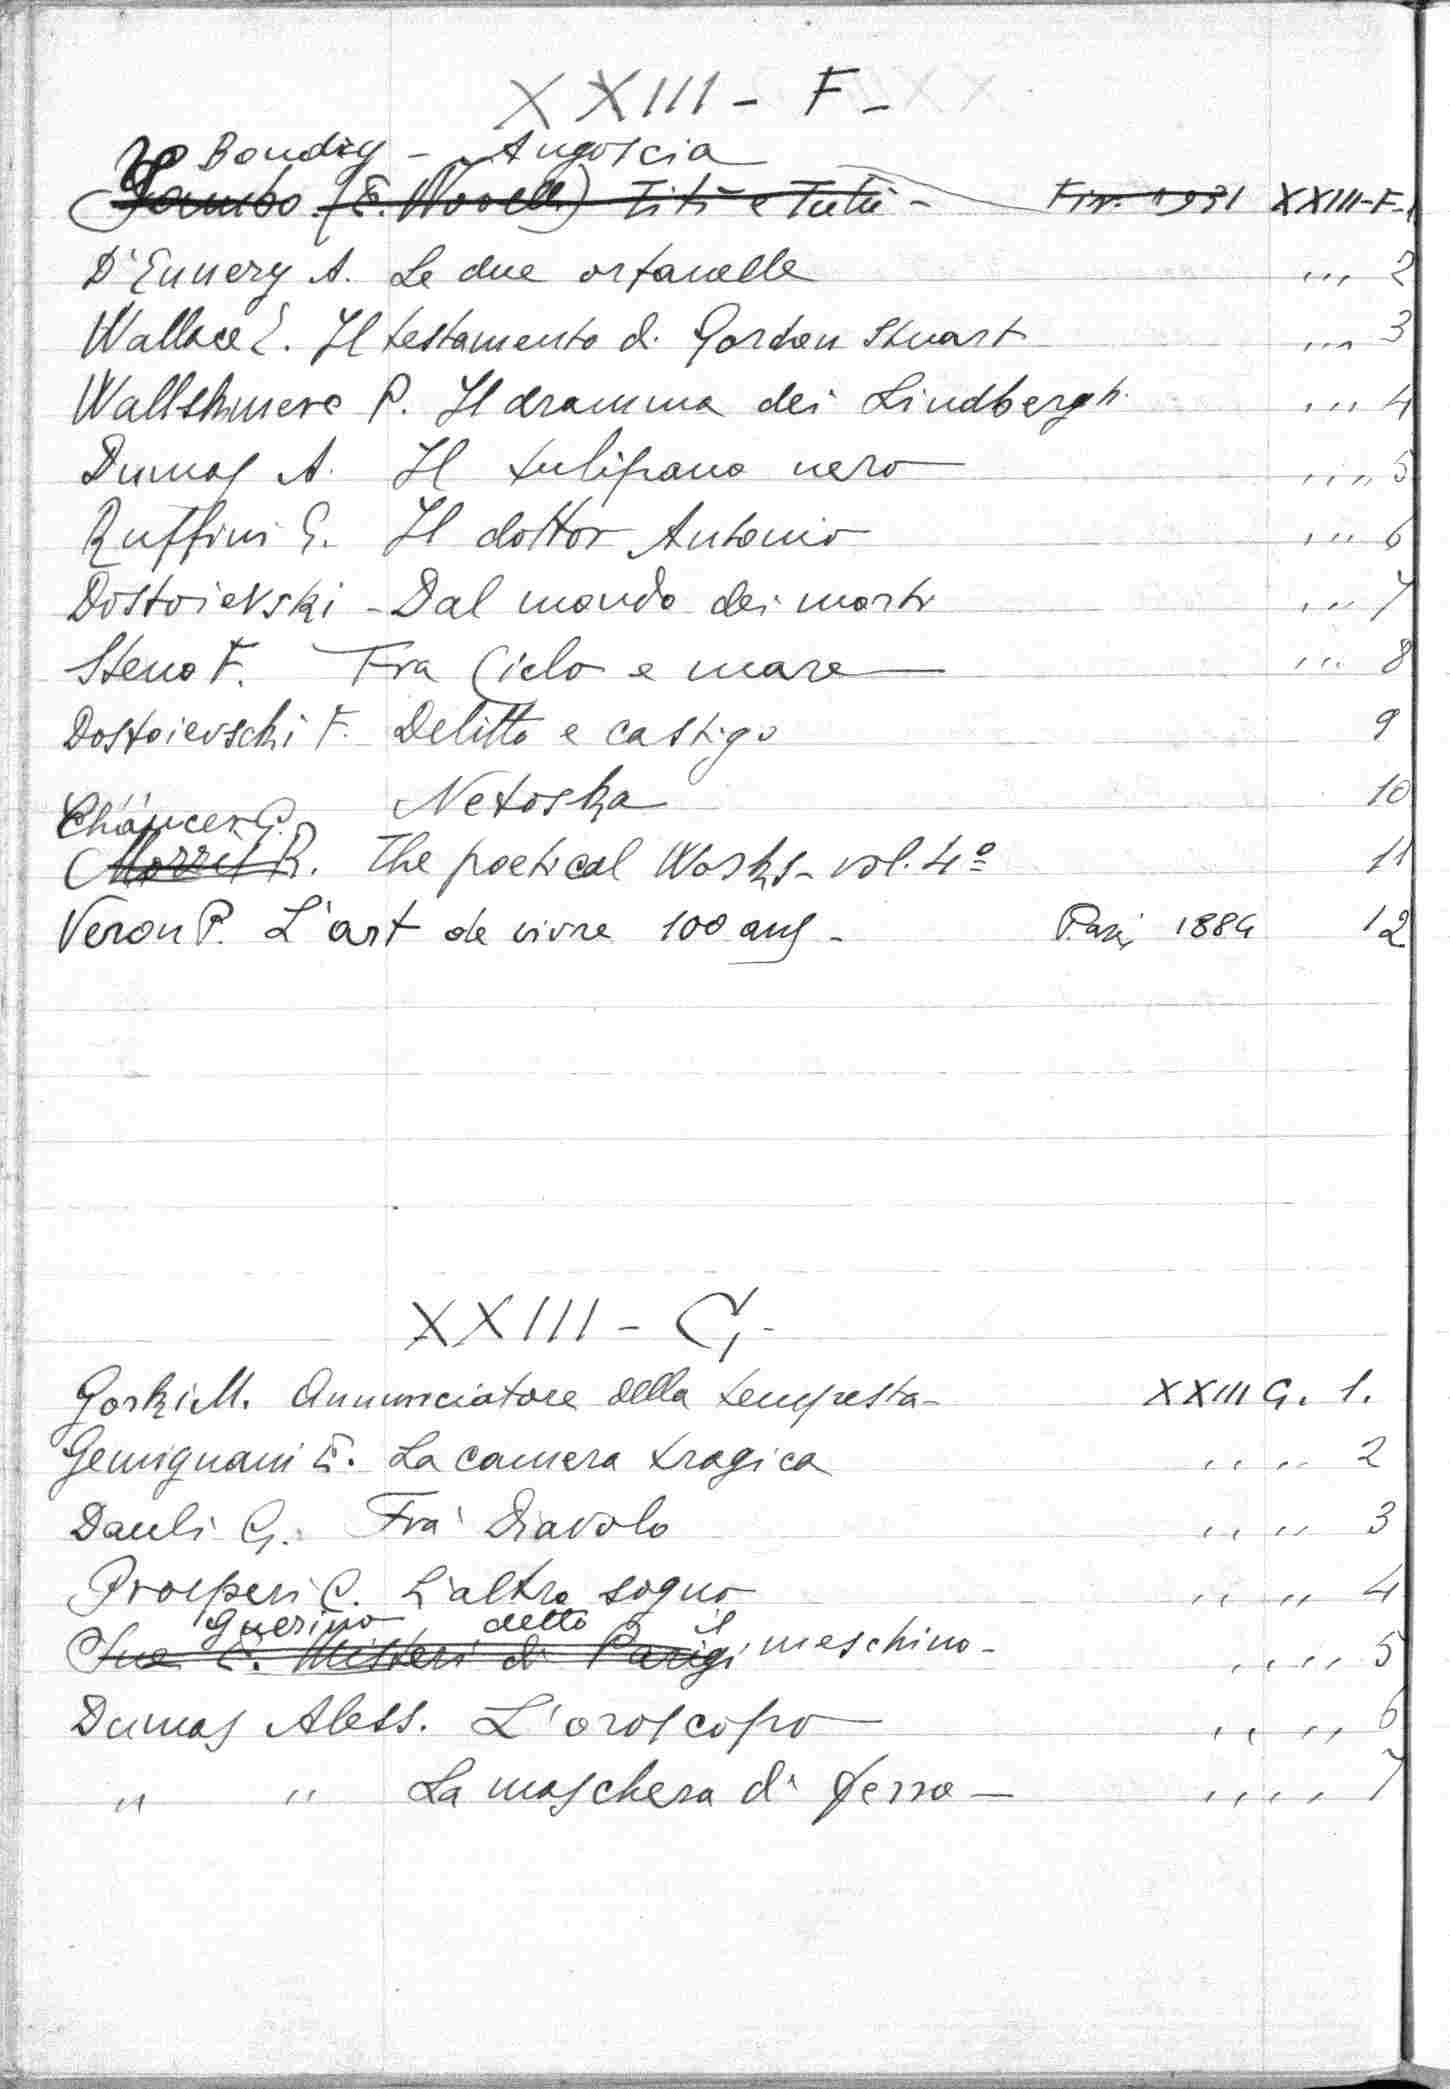 XXIII - F -
Boudry - Angoscia
Yambo (E. Novelli) Titì e Tutù - Fir. 1931 XXIII-F-1
D'Ennery A. Le due orfanelle ,,, 2
Wallace E. Il testamento di Gordon Stuart ,,, 3
Wallshmere P. Il dramma dei Lindbergh. ,,, 4
Dumas A. Il tulipano nero ,,,, 5
Ruffini G. Il dottor Antonio ,,, 6
Dostoievski - Dal mondo dei morti ,,, 7
Steno F. Fra Cielo e mare ,,, 8
Dostoievschi F. Delitto e castigo 9
Netoska 10
Chaucer G.
Morris R. The poetical Works - vol. 4º 11
Veron P. L'art de vivre 100 ans - Paris 1884 12
XXIII - G -
Gorki M. Annunciatore della tempesta - XXIII G. 1.
Gemignani E. La camera tragica ,, ,, 2
Dauli G. Fra' Diavolo ,, ,, 3
Prosperi C. L'altro sogno ,, ,, 4
Guerino detto il meschino -
Sue E. Misteri di Parigi ,, ,, 5
Dumas Aless. L'oroscopo ,, ,, 6
,, ,, La maschera di ferro - ,, ,, 7